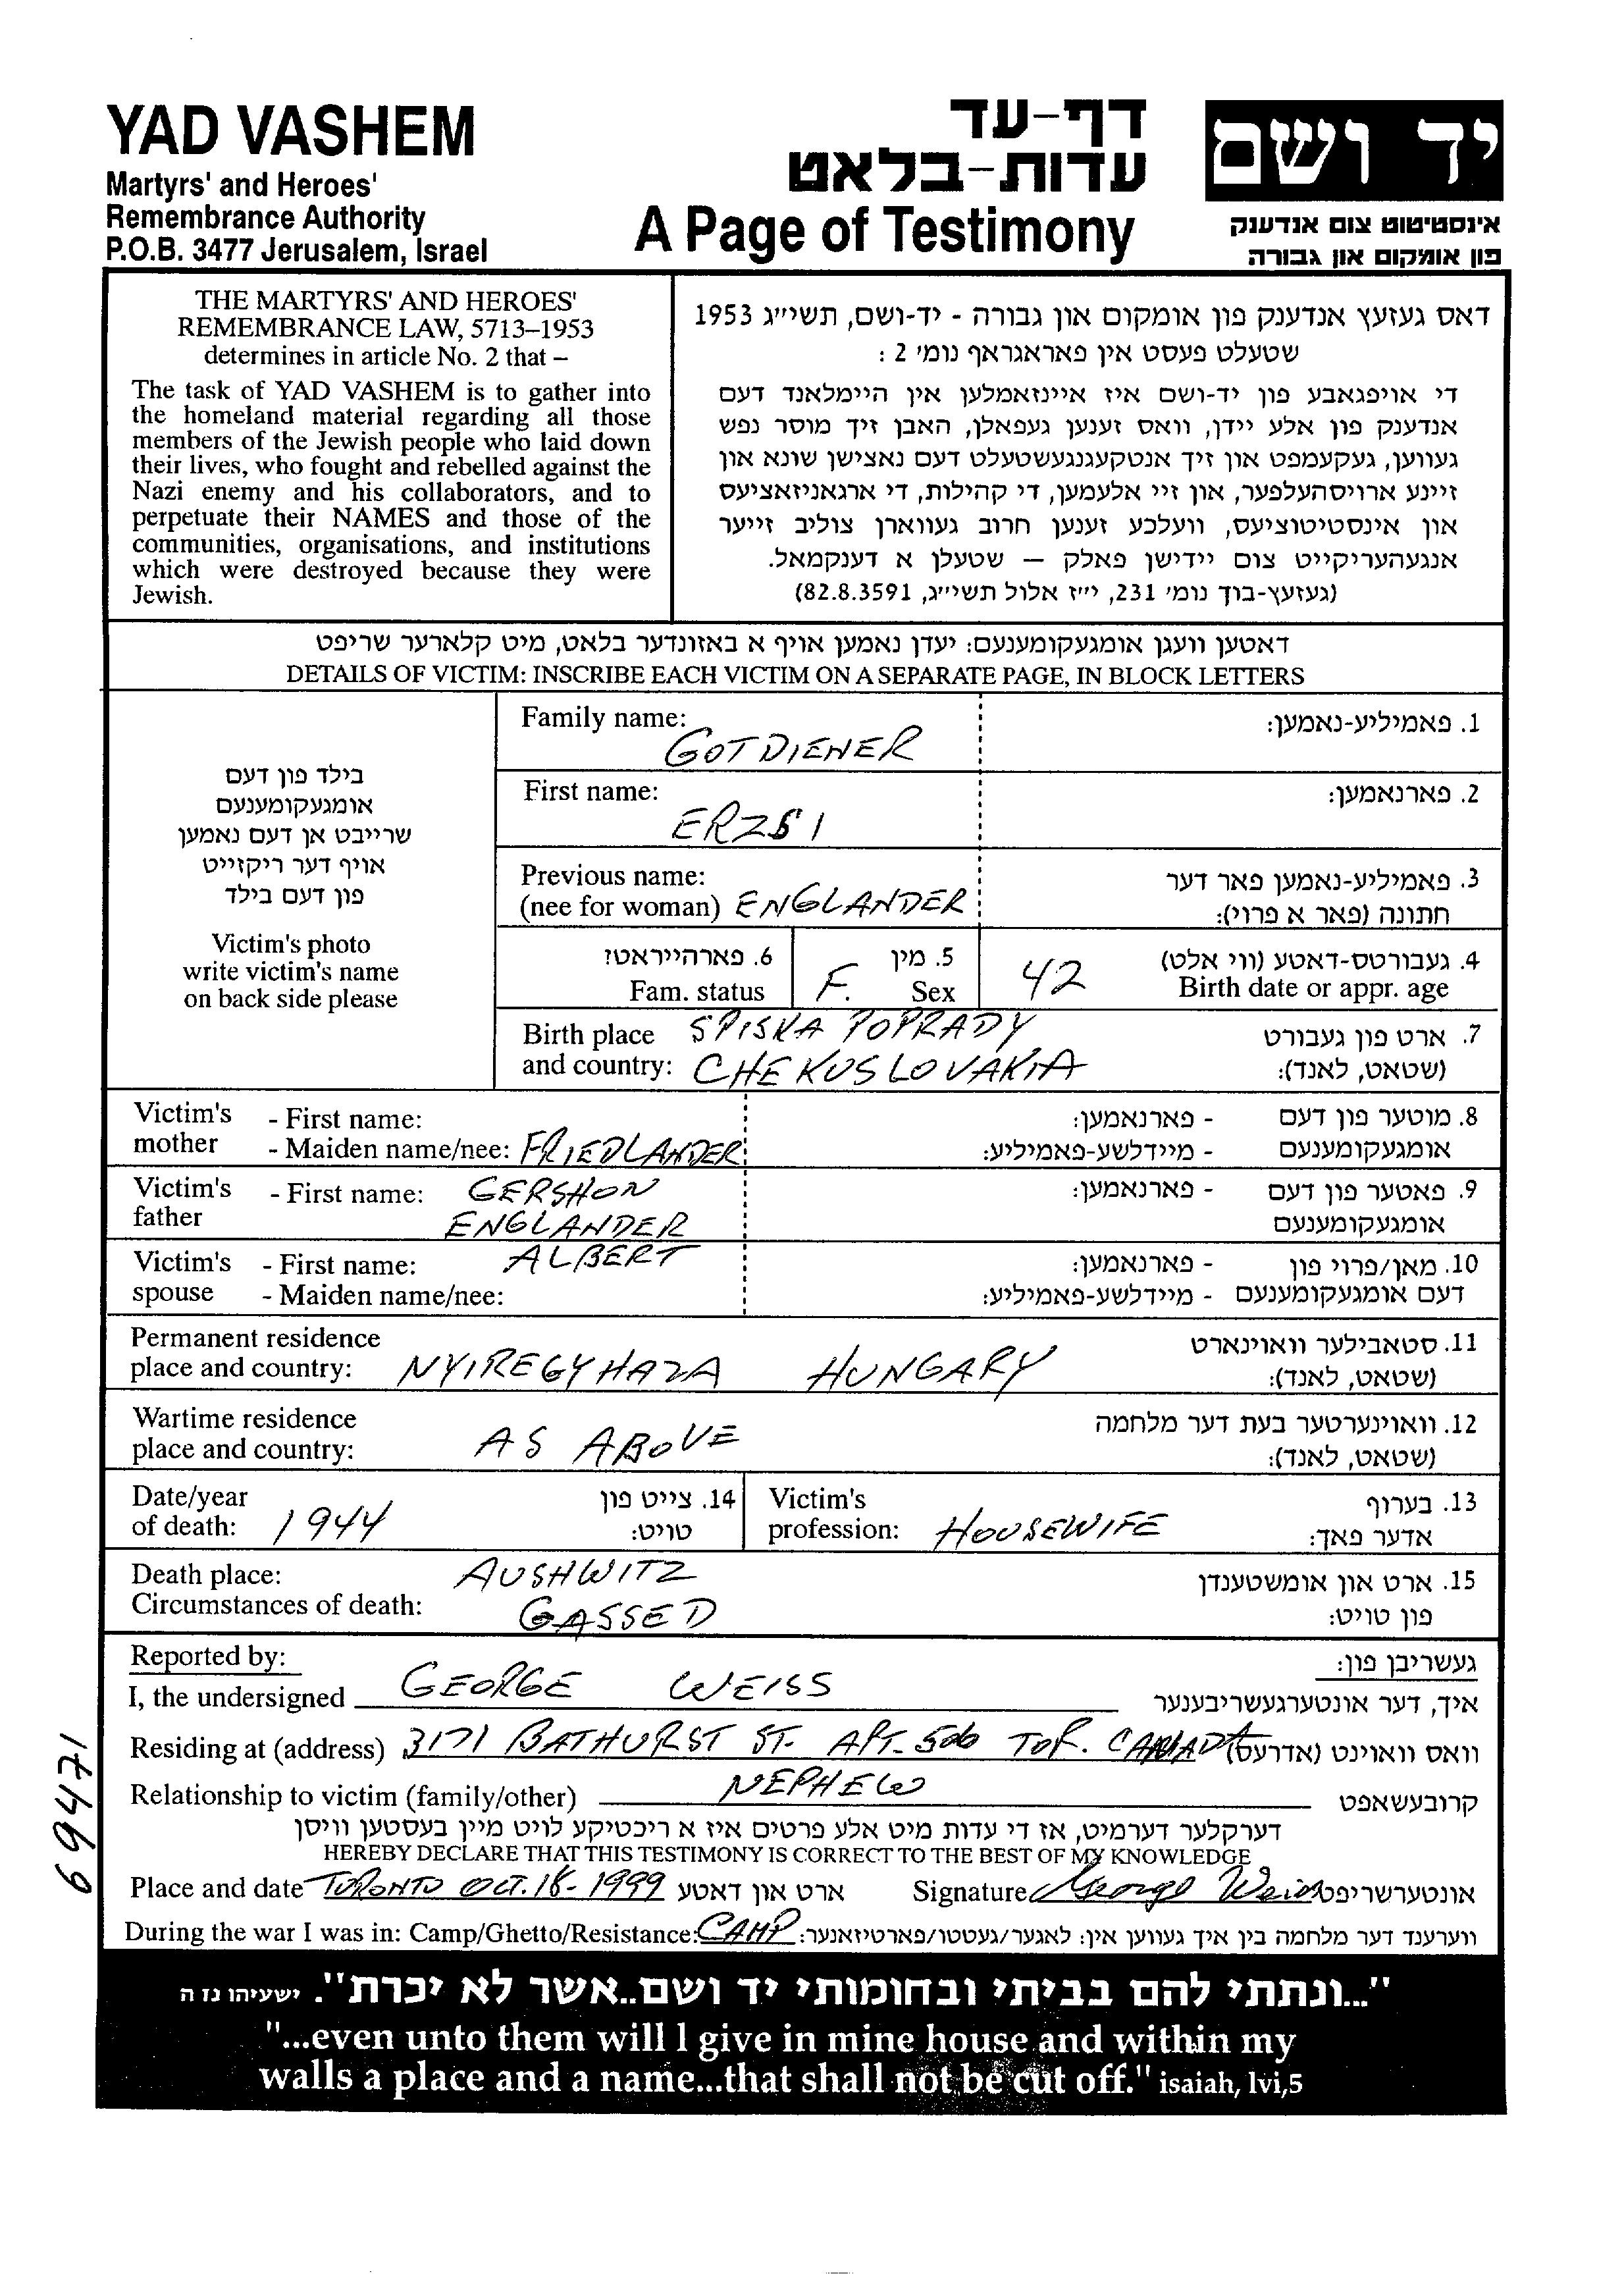 YAD VASHEM
Martyrs' and Heroes'
Remembrance Authority
P.O.B. 3477 Jerusalem, Israel
דף-עד
עדות-בלאט
A Page of Testimony
יד ושם
אינסטיטוט צום אנדענק
פון אומקום און גבורה
THE MARTYRS' AND HEROES'
REMEMBRANCE LAW, 5713–1953
determines in article No. 2 that –
The task of YAD VASHEM is to gather into
the homeland material regarding all those
members of the Jewish people who laid down
their lives, who fought and rebelled against the
Nazi enemy and his collaborators, and to
perpetuate their NAMES and those of the
communities, organisations, and institutions
which were destroyed because they were
Jewish.
דאס געזעץ אנדענק פון אומקום און גבורה - יד-ושם, תשי״ג 1953
שטעלט פעסט אין פאראגראף נומ׳ 2 :
די אויפגאבע פון יד-ושם איז איינזאמלען אין היימלאנד דעם
אנדענק פון אלע יידן, וואס זענען געפאלן, האבן זיך מוסר נפש
געווען, געקעמפט און זיך אנטקעגנגעשטעלט דעם נאצישן שונא און
זיינע ארויסהעלפער, און זיי אלעמען, די קהילות, די ארגאניזאציעס
און אינסטיטוציעס, וועלכע זענען חרוב געווארן צוליב זייער
אנגעהעריקייט צום יידישן פאלק — שטעלן א דענקמאל.
(געזעץ-בוך נומ׳ 231, י״ז אלול תשי״ג, 82.8.3591)
דאטען וועגן אומגעקומענעם: יעדן נאמען אויף א באזונדער בלאט, מיט קלארער שריפט
DETAILS OF VICTIM: INSCRIBE EACH VICTIM ON A SEPARATE PAGE, IN BLOCK LETTERS
בילד פון דעם
אומגעקומענעם
שרייבט אן דעם נאמען
אויף דער ריקזייט
פון דעם בילד
Victim's photo
write victim's name
on back side please
Family name: GOTDIENER 1. פאמיליע-נאמען:
First name: ERZSI 2. פארנאמען:
Previous name: 3. פאמיליע-נאמען פאר דער
(nee for woman) ENGLANDER חתונה (פאר א פרוי):
6. פארהייראט? 5. מין 4. געבורטס-דאטע (ווי אלט)
Fam. status F. Sex 42 Birth date or appr. age
Birth place SPISKA POPRADY 7. ארט פון געבורט
and country: CHEKUSLOVAKIA (שטאט, לאנד):
Victim's - First name: - פארנאמען: 8. מוטער פון דעם
mother - Maiden name/nee: FRIEDLANDER - מיידלשע-פאמיליע: אומגעקומענעם
Victim's - First name: GERSHON - פארנאמען: 9. פאטער פון דעם
father ENGLANDER אומגעקומענעם
Victim's - First name: ALBERT - פארנאמען: 10. מאן/פרוי פון
spouse - Maiden name/nee: - מיידלשע-פאמיליע: דעם אומגעקומענעם
Permanent residence 11. סטאבילער וואוינארט
place and country: NYIREGYHAZA HUNGARY (שטאט, לאנד):
Wartime residence 12. וואוינערטער בעת דער מלחמה
place and country: AS ABOVE (שטאט, לאנד):
Date/year 14. צייט פון Victim's 13. בערוף
of death: 1944 טויט: profession: HOUSEWIFE אדער פאך:
Death place: AUSHWITZ 15. ארט און אומשטענדן
Circumstances of death: GASSED פון טויט:
Reported by: געשריבן פון:
I, the undersigned GEORGE WEISS איך, דער אונטערגעשריבענער
Residing at (address) 3171 BATHURST ST. APT. 506 TOR. CANADA וואס וואוינט (אדרעס)
Relationship to victim (family/other) NEPHEW קרובעשאפט
דערקלער דערמיט, אז די עדות מיט אלע פרטים איז א ריכטיקע לויט מיין בעסטען וויסן
HEREBY DECLARE THAT THIS TESTIMONY IS CORRECT TO THE BEST OF MY KNOWLEDGE
Place and date TORONTO OCT. 18 - 1999 ארט און דאטע Signature George Weiss אונטערשריפט
During the war I was in: Camp/Ghetto/Resistance: CAMP ווערענד דער מלחמה בין איך געווען אין: לאגער/געטטו/פארטיזאנער:
69471
"...ונתתי להם בביתי ובחומותי יד ושם..אשר לא יכרת". ישעיהו נו ה
"...even unto them will I give in mine house and within my
walls a place and a name...that shall not be cut off." isaiah, lvi,5